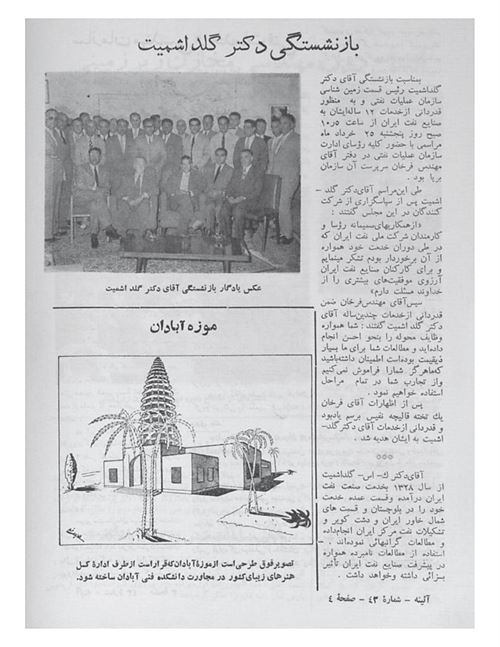 بازنشستگی دکتر گلداشمیت
بمناسبت بازنشستگی آقای دکتر
گلداشمیت رئیس قسمت زمین شناسی
سازمان عملیات نفتی و به منظور
قدردانی ازخدمات ۱۲ ساله‌ایشان به
صنایع نفت ایران از ساعت ۱۰٫۵
صبح روز پنجشنبه ۲۵ خرداد ماه
مراسمی با حضور کلیه رؤسای ادارت
سازمان عملیات نفتی در دفتر آقای
مهندس فرخان سرپرست آن سازمان
برپا بود .
طی این‌مراسم آقای‌دکتر گلد-
اشمیت پس از سپاسگزاری از شرکت
کنندگان در این مجلس گفتند :
«ازهمکاریهای‌صمیمانه رؤسا و
کارمندان شرکت ملی نفت ایران که
در طی دوران خدمت خود همواره
از آن برخوردار بودم تشکر مینمایم
و برای کارکنان صنایع نفت ایران
آرزوی موفقیت‌های بیشتری را از
خداوند مسئلت دارم»
سپس‌آقای مهندس‌فرخان ضمن
قدردانی ازخدمات چندین‌ساله آقای
دکتر گلد اشمیت گفتند : شما همواره
وظایف محوله را بنحو احسن انجام
داده‌اید و مطالعات شما برای ما بسیار
ذیقیمت بوده‌است اطمینان داشته‌باشید
که‌ماهرگز شمارا فراموش نمی‌کنیم
واز تجارب شما در تمام مراحل
استفاده خواهیم نمود .
پس از اظهارات آقای فرخان
یك تخته قالیچه نفیس برسم یادبود
و قدردانی ازخدمات آقای دکتر گلد-
اشمیت به ایشان هدیه شد .
***
آقای‌دکتر ك- اس- گلداشمیت
از سال ۱۳۲۸ بخدمت صنعت نفت
ایران درآمده وقسمت عمده خدمت
خود را در بلوچستان و قسمت های
شمال خاور ایران و دشت کویر و
تشکیلات نفت مرکز ایران انجام‌داده
و مطالعات گرانبهائی نموده‌اند .
استفاده از مطالعات نامبرده همواره
در پیشرفت صنایع نفت ایران تأثیر
بسزائی داشته وخواهد داشت .
عکس یادگار بازنشستگی آقای دکتر گلد اشمیت
موزه آبادان
تصویر فوق طرحی است از موزۀ آبادان‌که قرار است از طرف ادارۀ کل
هنرهای زیبای کشور در مجاورت دانشکده فنی آبادان ساخته شود.
آئینه - شمارۀ ۴۳ - صفحۀ ۴